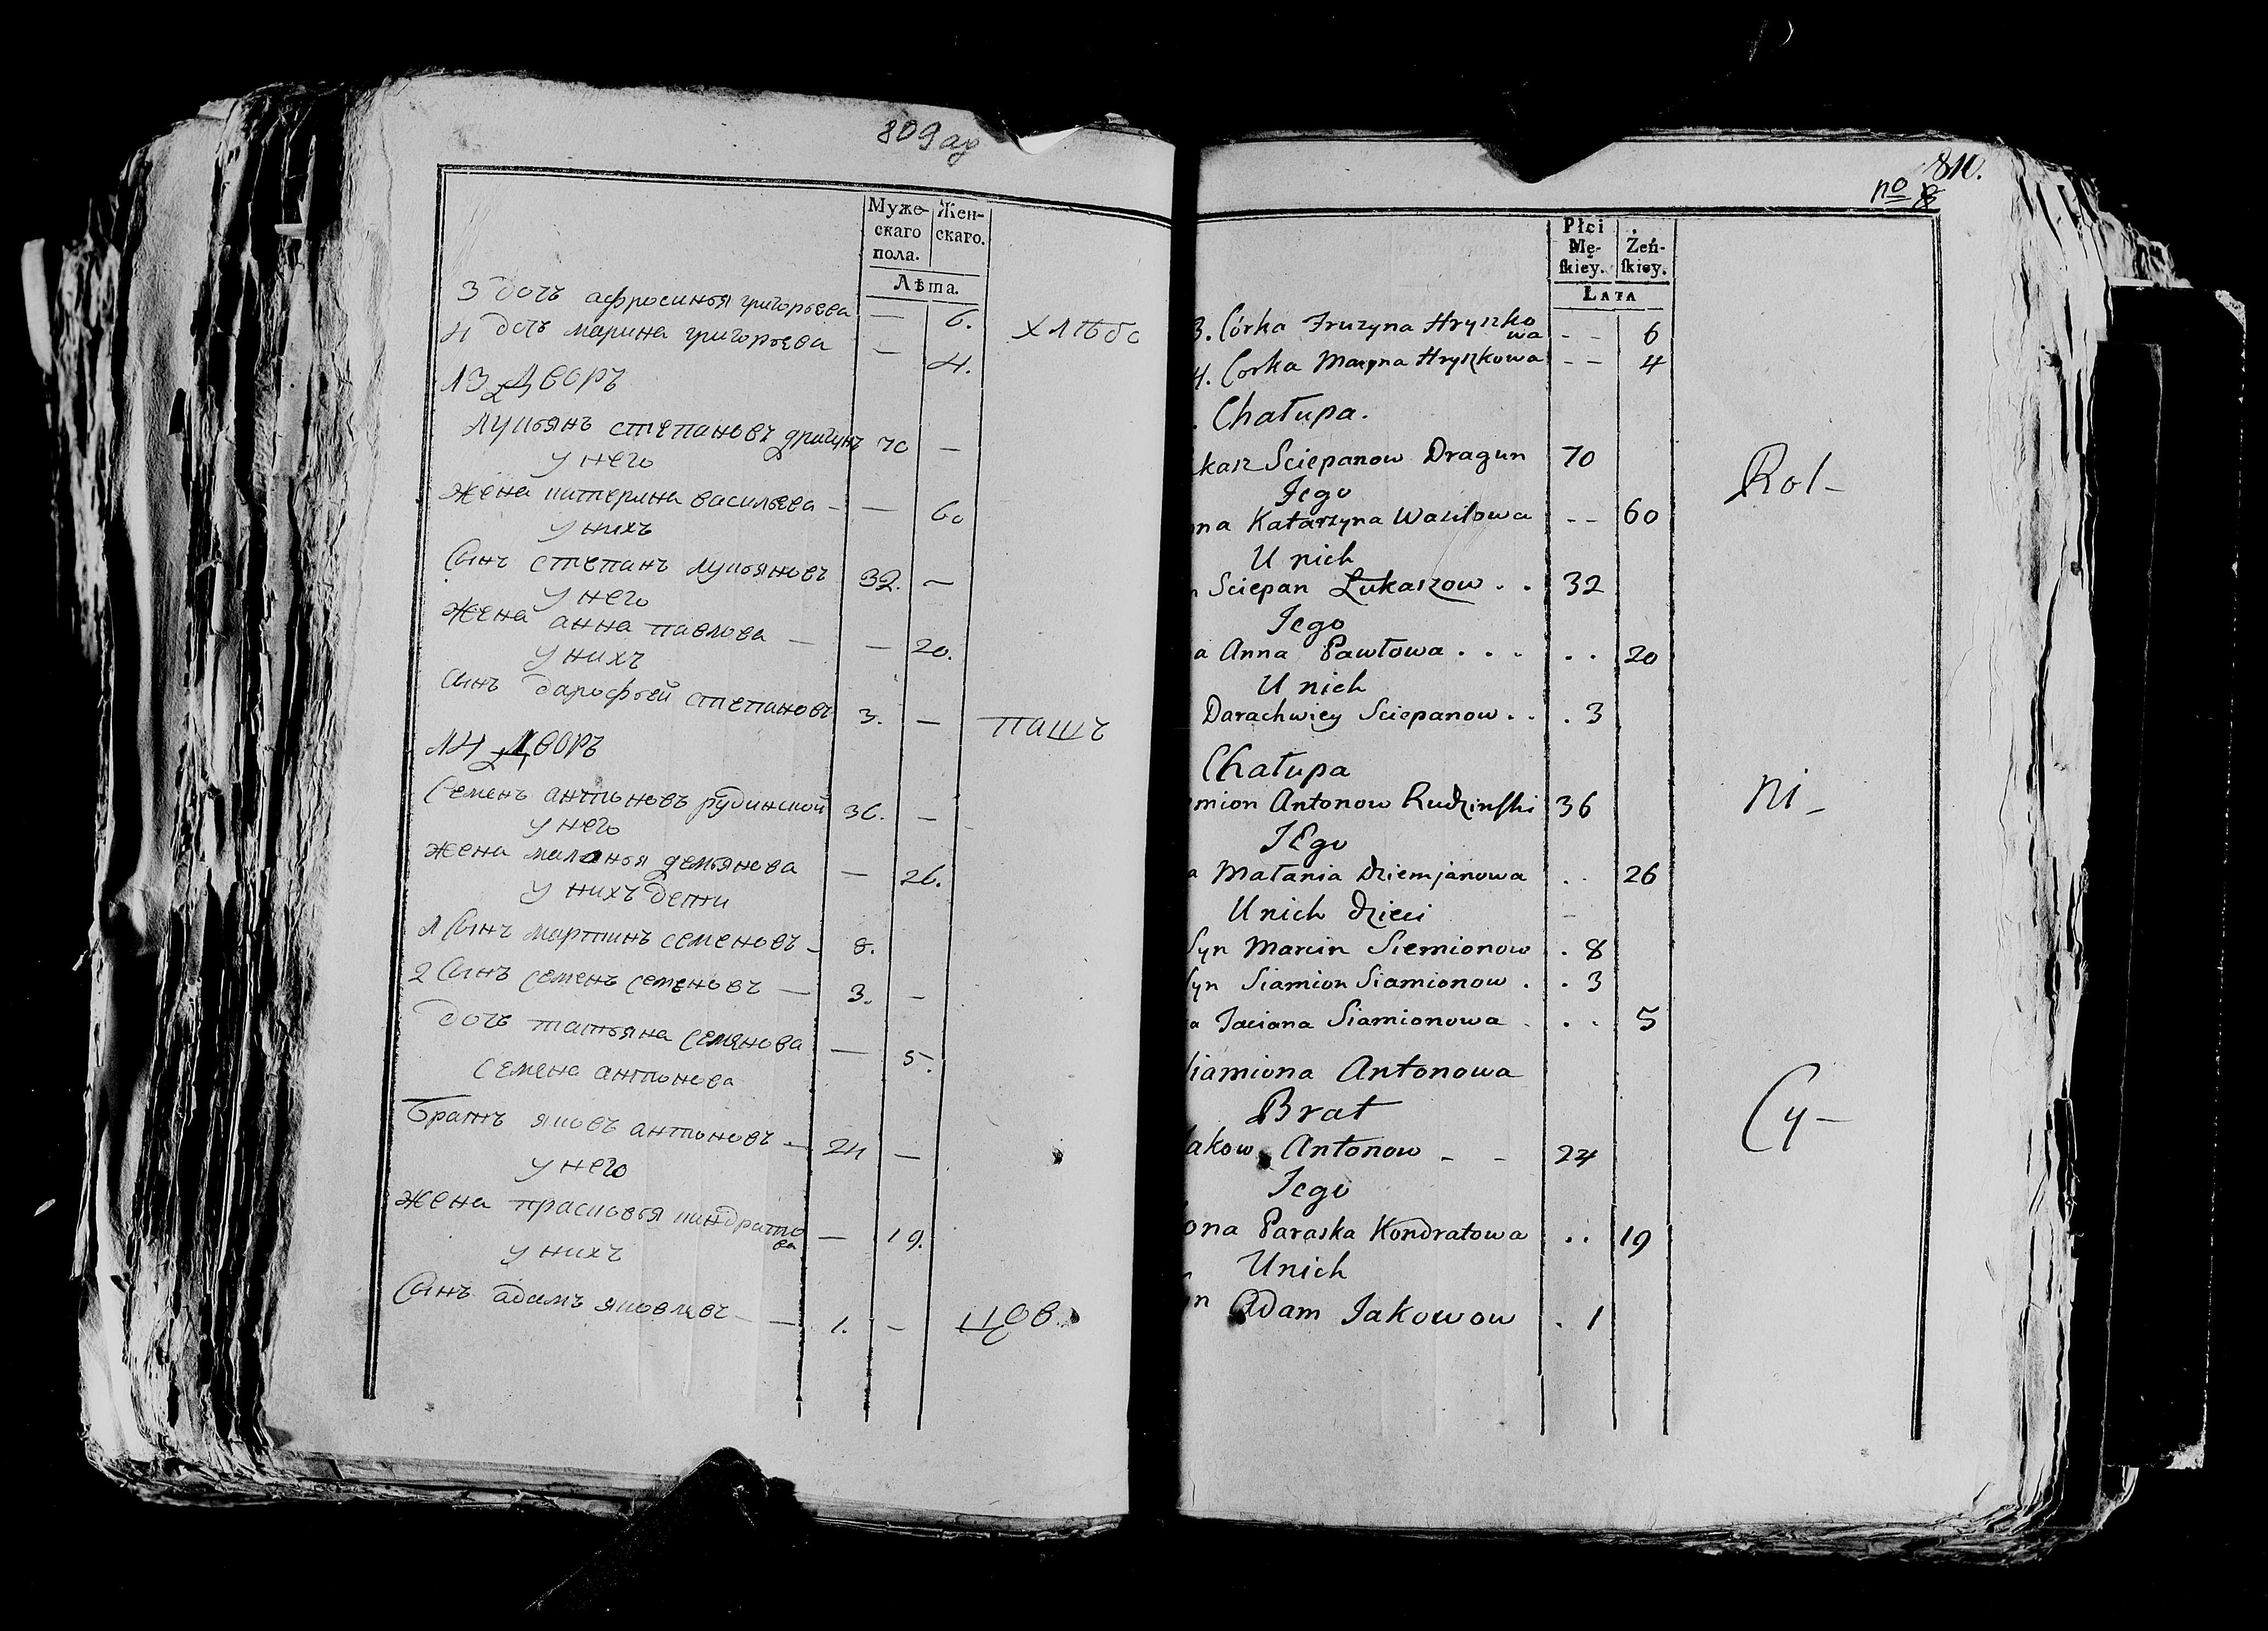 809 ау
Муже-
скаго
пола.
Жен-
скаго.
Лѣта.
3 дочь афросинья григорьева — 6.
4 дочь марина григорьева — 4.
хлѣбо
13 Дворъ
лукьянъ степановъ драгунъ 70 —
у него
жена катерина васильева — — 60
у нихъ
Сынъ степанъ лукьяновъ 32. —
у него
жена анна павлова — — 20.
у нихъ
Сынъ дарофѣй степановъ 3. —
пашъ
14 Дворъ
Семенъ антоновъ рудинской 36. —
у него
жена маланья демьянова — 26.
у нихъ дети
1 Сынъ мартинъ семеновъ — 8.
2 Сынъ семенъ семеновъ — 3. —
дочь татьяна семянова — 5.
Семена антонова
братъ яковъ антоновъ — 24 —
у него
жена прасковья кандрато
ва — 19.
у нихъ
Сынъ адамъ яковлевъ — — 1. —
цов.
810.
no 8
Płci
Mę-
ſkiey.
Żeń-
ſkiey.
LATA
3. Córka Fruzyna Hryszko
wa - - 6
4. Corka Maryna Hryszkowa - - 4
. Chałupa.
kasz Sciepanow Dragun 70
Jego
na Katarzyna Wasilowa - - 60
U nich
n Sciepan Łukaszow . . 32
Jego
a Anna Pawłowa . . . . . 20
U nich
Darachwiey Sciepanow . . . 3
Chałupa
mion Antonow Rudzinſki 36
JEgo
a Małania Dziemjanowa . . 26
U nich dzieci
Syn Marcin Siemionow . 8
Syn Siamion Siamionow . . 3
a Taciana Siamionowa . . . 5
Siamiona Antonowa
Brat
Jakow Antonow - - 24
Jego
ona Paraska Kondratowa . . 19
U nich
n Adam Jakowow . 1
Rol-
ni-
Cy-